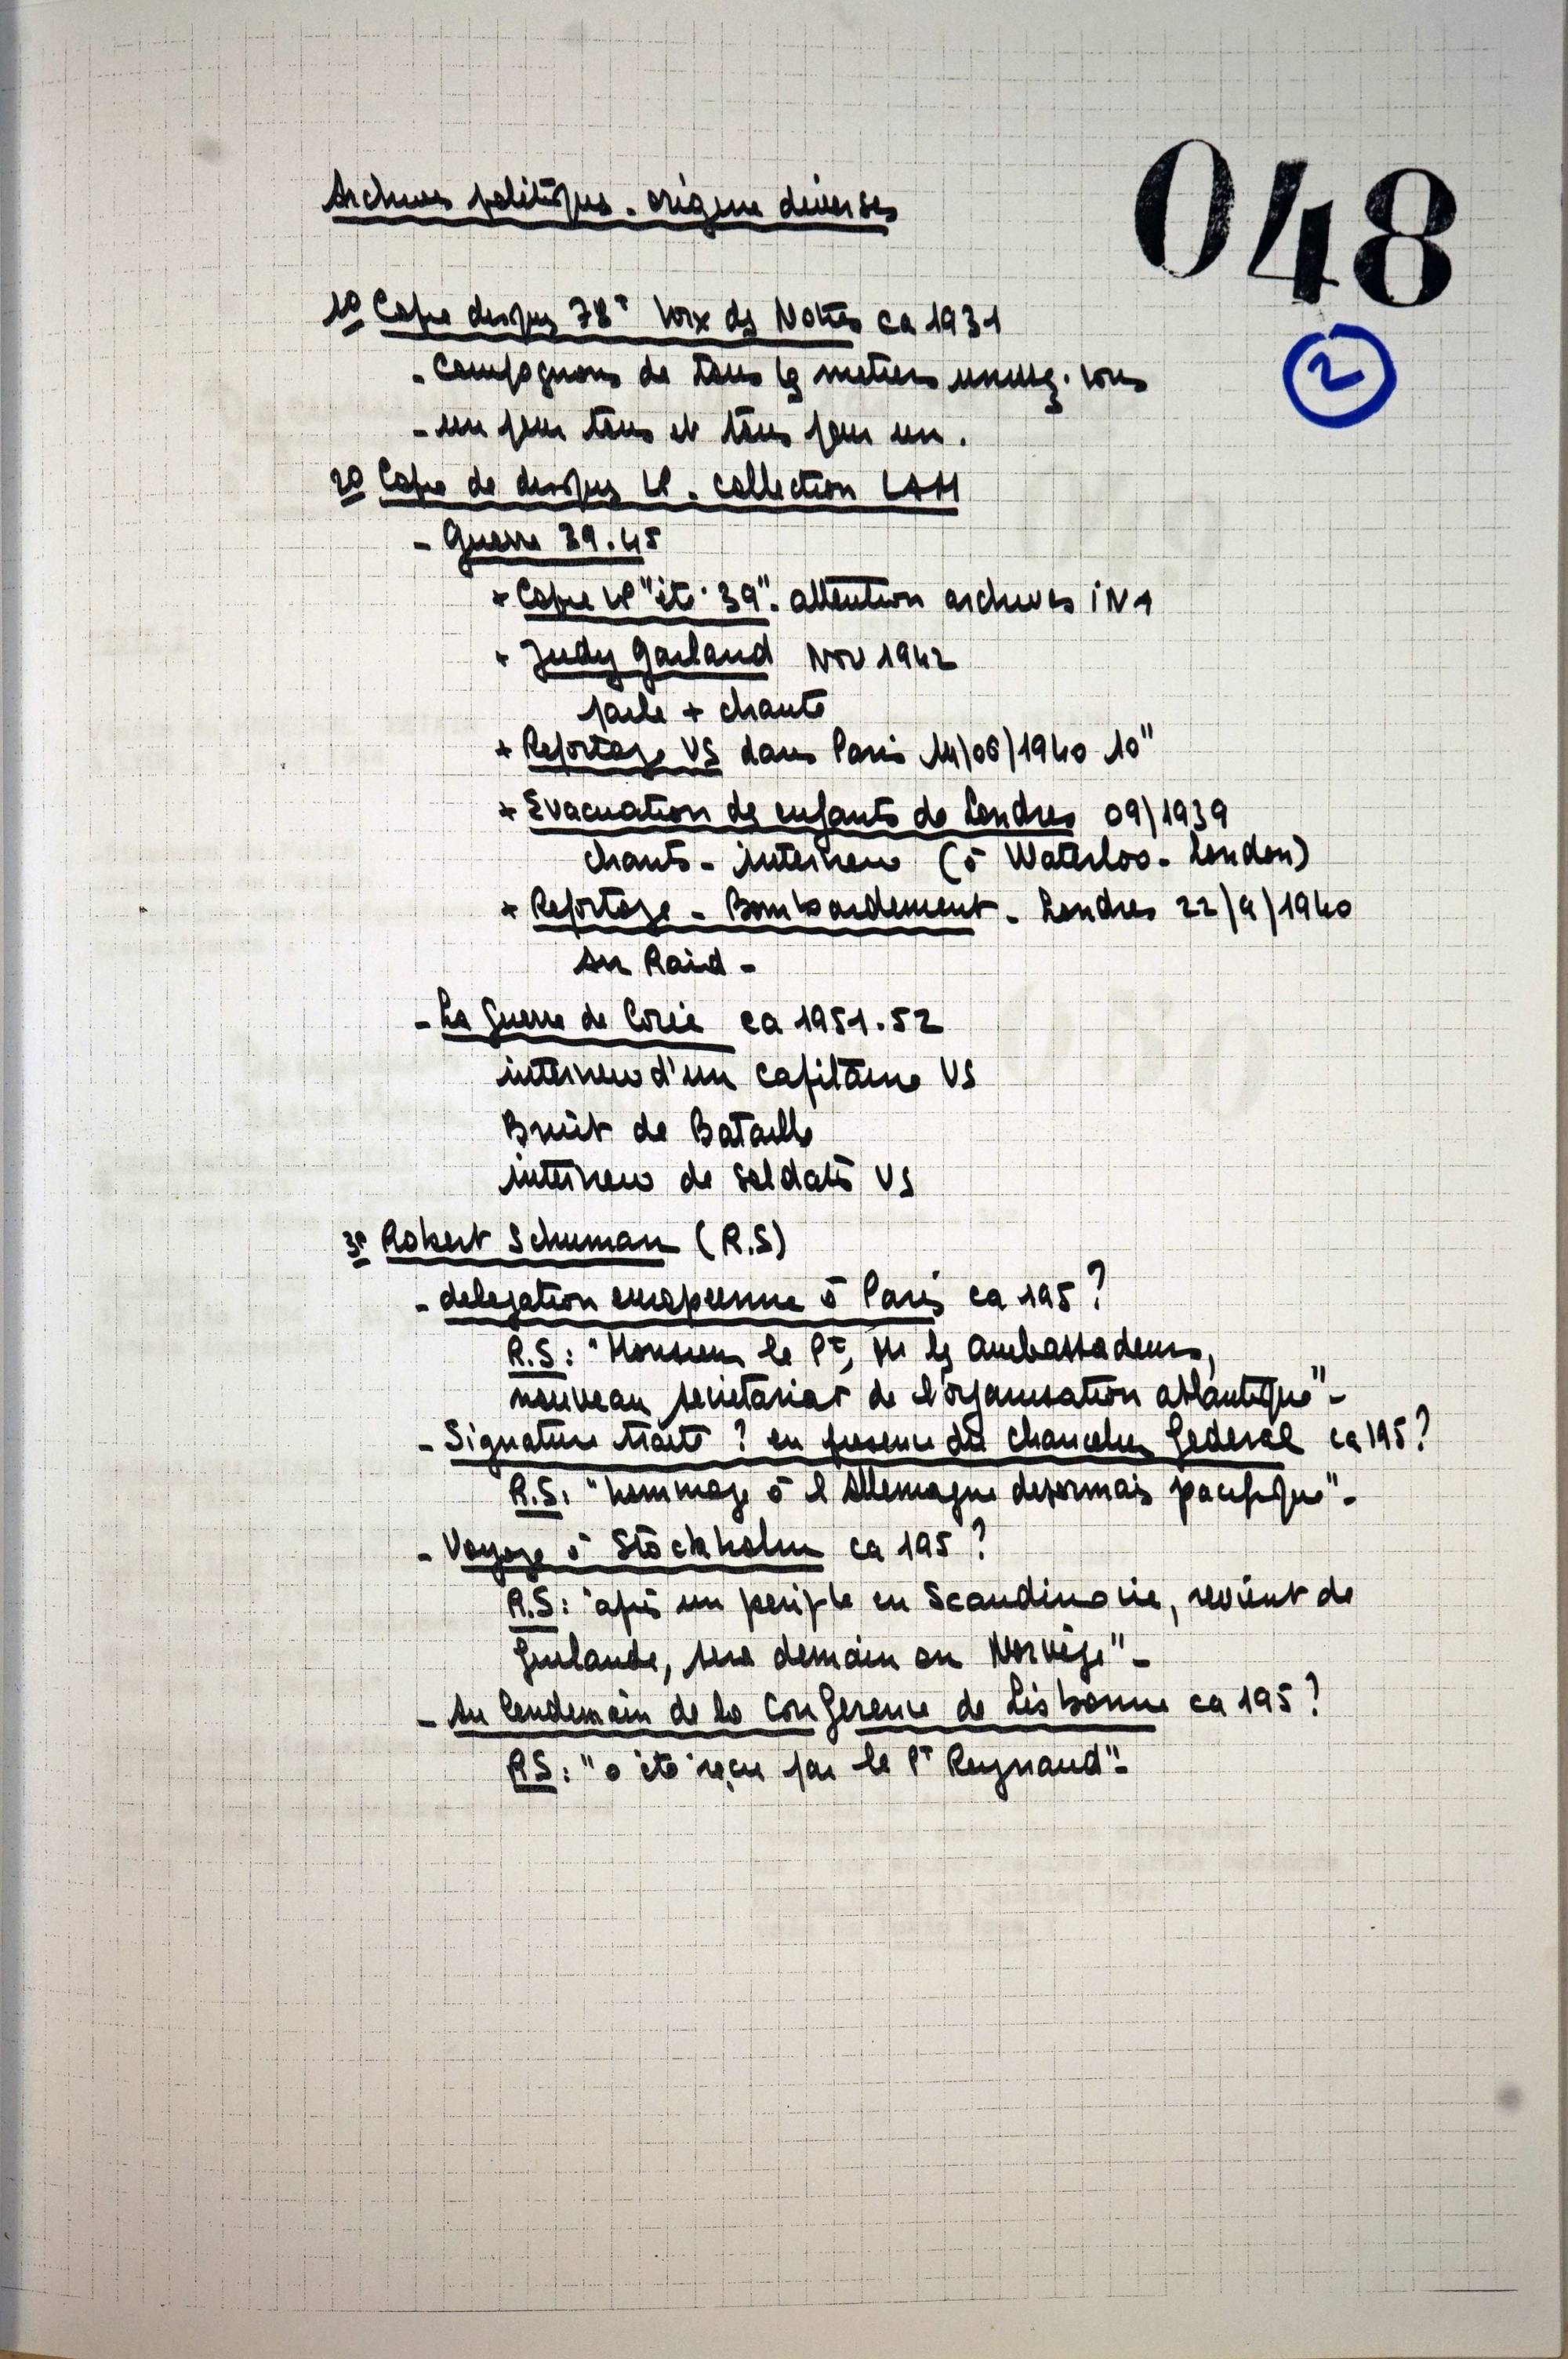 048
2
Archives politiques. origine diverses
1° Copie disques 78T Voix des Nôtres ca 1931
- Compagnons de tous les metiers unissez. vous
- un pour tous et tous pour un.
2° Copie de disques LP. collection LAM
- Guerre 39.45
+ Copie LP "été 39". attention archives INA
+ Judy Garland Nov 1942
parle + chante
+ Reportage US dans Paris 14/06/1940 10"
+ Evacuation des enfants de Londres 09/1939
chants - interview (à Waterloo - London)
+ Reportage - Bombardement - Londres 22/9/1940
Air Raid -
- La Guerre de Corée ca 1951.52
interview d'un capitaine US
Bruit de Bataille
interview de soldats US
3° Robert Schuman (R.S)
- delegation europeenne à Paris ca 195?
R.S: "Monsieur le Pt, MM les ambassadeurs,
nouveau secrétariat de l'organisation atlantique"-
- Signature traité ? en presence du chancelier federal ca 195?
R.S: "hommage à l'Allemagne desormais pacifique"-
- Voyage à Stockholm ca 195?
R.S: "après un periple en Scandinavie, revient de
Finlande, sera demain en Norvège"-
- Au lendemain de la Conference de Lisbonne ca 195?
RS: "a été reçu par le Pt Reynaud"-